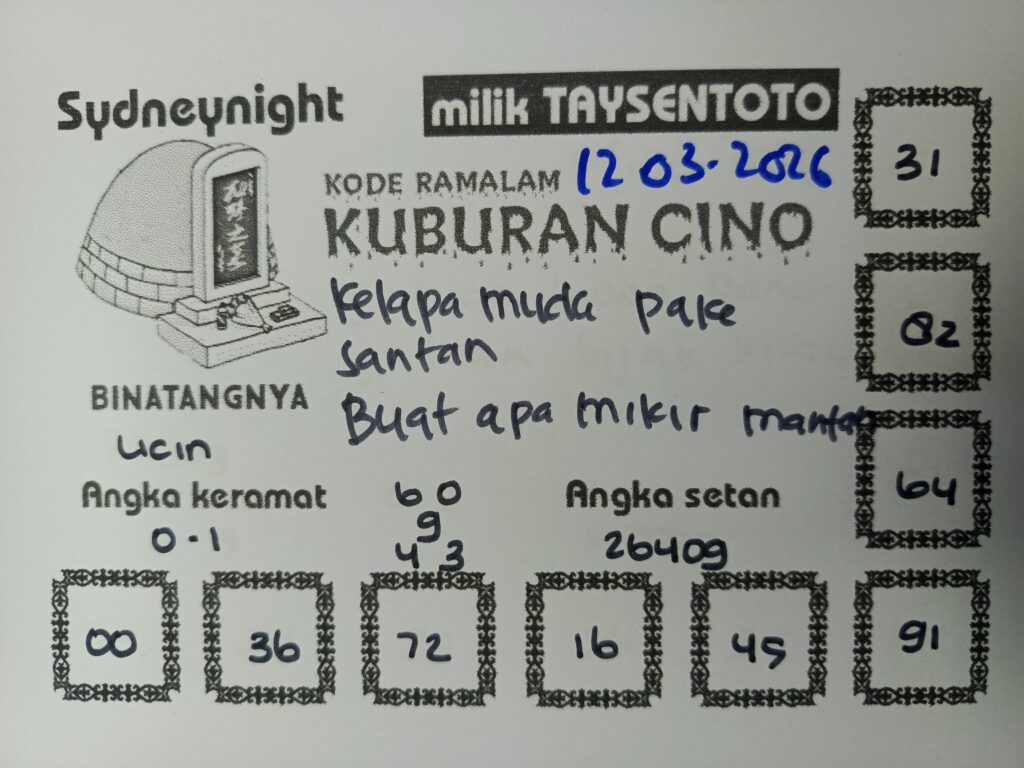 Sydneynight
milik TAYSENTOTO
KODE RAMALAM 12 03-2026
KUBURAN CINO
Kelapa muda pake
santan
Buat apa mikir mantan
BINATANGNYA
ucin
Angka keramat
0-1
6 0
9
4 3
Angka setan
26409
31
82
64
00 36 72 16 45 91